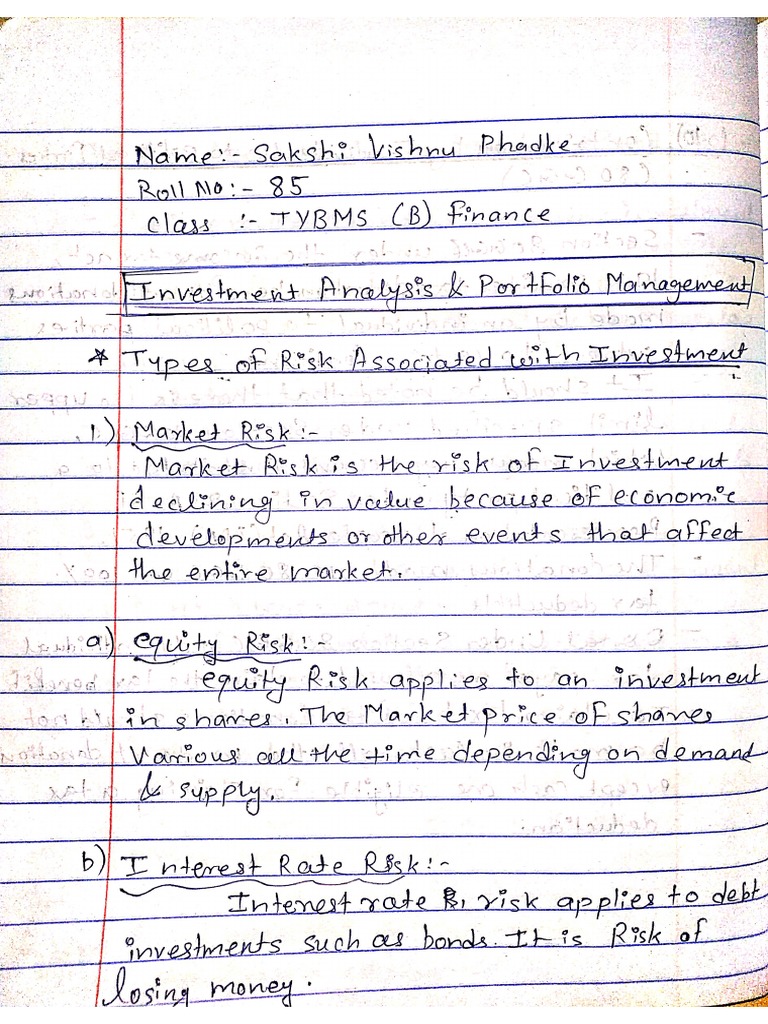 Name:- Sakshi Vishnu Phadke
Roll No:- 85
Class :- TYBMS (B) finance
Investment Analysis & Portfolio Management
* Types of Risk Associated with Investment
1.) Market Risk:-
Market Risk is the risk of Investment
declining in value because of economic
developments or other events that affect
the entire market.
a) equity Risk:-
equity Risk applies to an investment
in shares. The Market price of shares
various all the time depending on demand
& supply.
b) Interest Rate Risk:-
Interest rate risk applies to debt
investments such as bonds. It is Risk of
losing money.